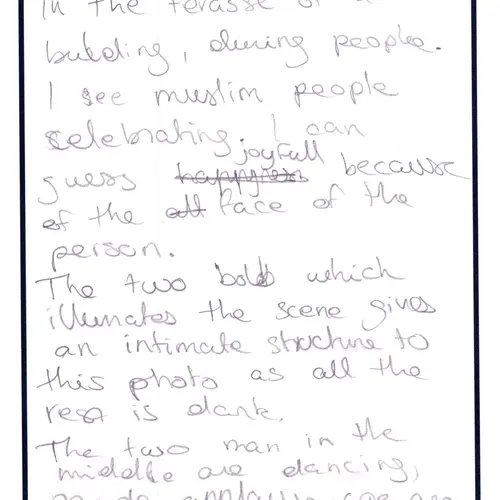 in the terasse of a
building, during people.
I see muslim people
celebrating. I can
joyfull
guess happyness because
of the all face of the
person.
The two bold which
illumates the scene gives
an intimate structure to
this photo as all the
rest is dark.
The two man in the
middle are dancing,